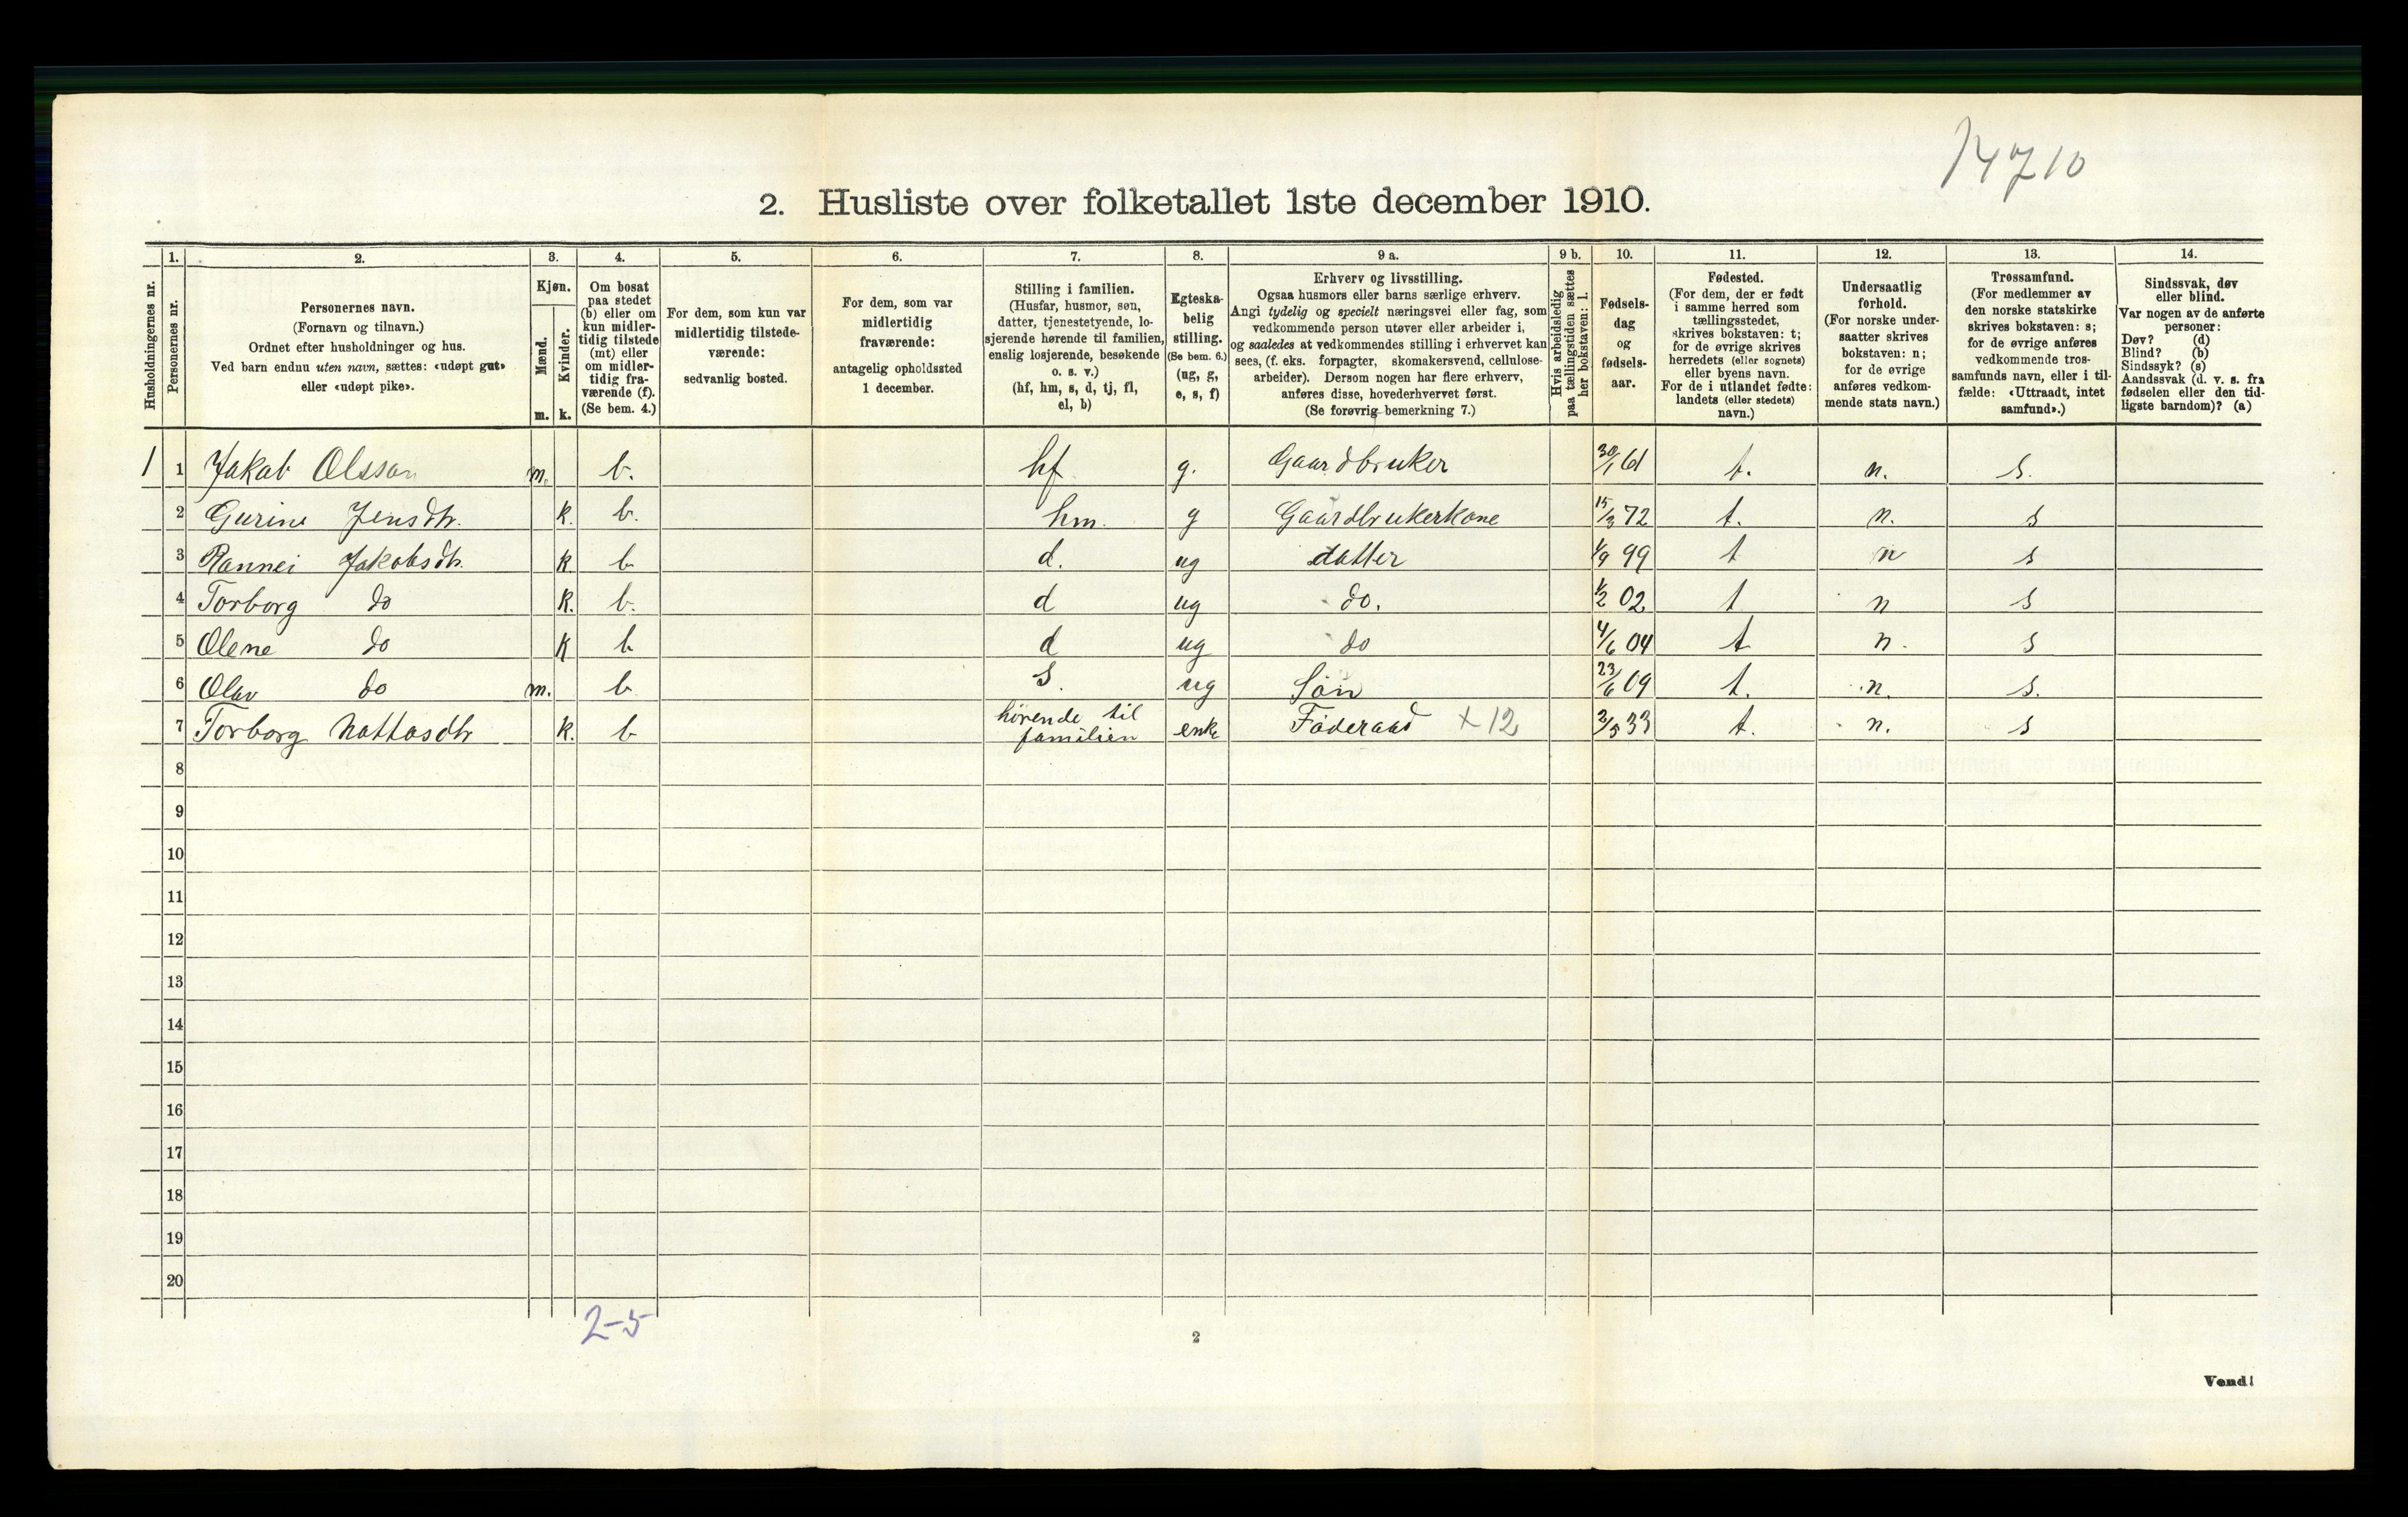 14710
2. Husliste over folketallet 1ste december 1910.
1. 2. 3. 4. 5. 6. 7. 8. 9 a. 9 b. 10. 11. 12. 13. 14.
Husholdningernes nr.
Personernes nr.
Personernes navn.
(Fornavn og tilnavn.)
Ordnet efter husholdninger og hus.
Ved barn endnu uten navn, sættes: «udøpt gut»
eller «udøpt pike».
Kjøn.
Mænd.
Kvinder.
m. k.
Om bosat
paa stedet
(b) eller om
kun midler-
tidig tilstede
(mt) eller
om midler-
tidig fra-
værende (f).
(Se bem. 4.)
For dem, som kun var
midlertidig tilstede-
værende:
sedvanlig bosted.
For dem, som var
midlertidig
fraværende:
antagelig opholdssted
1 december.
Stilling i familien.
(Husfar, husmor, søn,
datter, tjenestetyende, lo-
sjerende hørende til familien,
enslig losjerende, besøkende
o. s. v.)
(hf, hm, s, d, tj, fl,
el, b)
Egteska-
belig
stilling.
(Se bem. 6.)
(ug, g,
e, s, f)
Erhverv og livsstilling.
Ogsaa husmors eller barns særlige erhverv.
Angi tydelig og specielt næringsvei eller fag, som
vedkommende person utøver eller arbeider i,
og saaledes at vedkommendes stilling i erhvervet kan
sees, (f. eks. forpagter, skomakersvend, cellulose-
arbeider). Dersom nogen har flere erhverv,
anføres disse, hovederhvervet først.
(Se forøvrig bemerkning 7.)
Hvis arbeidsledig
paa tællingstiden sættes
her bokstaven: l.
Fødsels-
dag
og
fødsels-
aar.
Fødested.
(For dem, der er født
i samme herred som
tællingsstedet,
skrives bokstaven: t;
for de øvrige skrives
herredets (eller sognets)
eller byens navn.
For de i utlandet fødte:
landets (eller stedets)
navn.)
Undersaatlig
forhold.
(For norske under-
saatter skrives
bokstaven: n;
for de øvrige
anføres vedkom-
mende stats navn.)
Trossamfund.
(For medlemmer av
den norske statskirke
skrives bokstaven: s;
for de øvrige anføres
vedkommende tros-
samfunds navn, eller i til-
fælde: «Uttraadt, intet
samfund».)
Sindssvak, døv
eller blind.
Var nogen av de anførte
personer:
Døv? (d)
Blind? (b)
Sindssyk? (s)
Aandssvak (d. v. s. fra
fødselen eller den tid-
ligste barndom)? (a)
1 1 Jakob Olsson m. b. hf g. Gaardbruker 30/1 61 t. n. s.
2 Gurine Jensdtr. k. b. hm. g Gaardbrukerkone 15/3 72 t. n. s
3 Rannei Jakobsdtr. k b d. ug datter 1/9 99 t n s
4 Torborg do k. b. d ug do. 1/2 02 t n s
5 Olene do k b d ug do 4/6 04 t n. s
6 Olav do m. b s. ug Søn 23/6 09 t. n. s.
7 Torborg Nattasdtr k. b hørende til
familien enke Føderaad + 12 2/5 33 t. n. s
8
9
10
11
12
13
14
15
16
17
18
19
20
2-5
2
Vend!